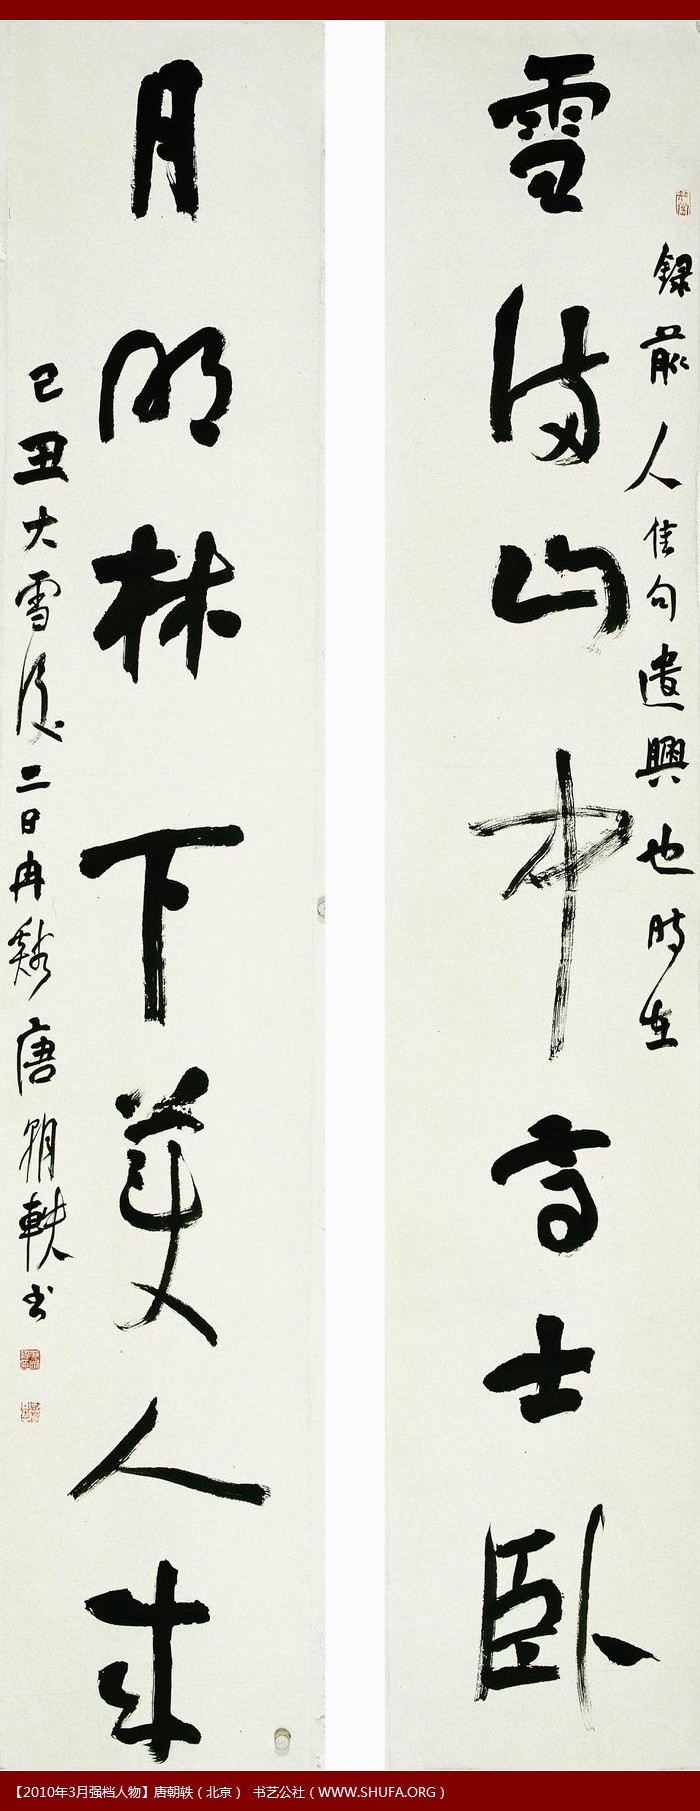 錄前人佳句遣興也時在
雪滿山中高士卧
月明林下美人来
己丑大雪後二日冉谿唐朝軼书
【2010年3月强档人物】唐朝轶（北京） 书艺公社（WWW.SHUFA.ORG）